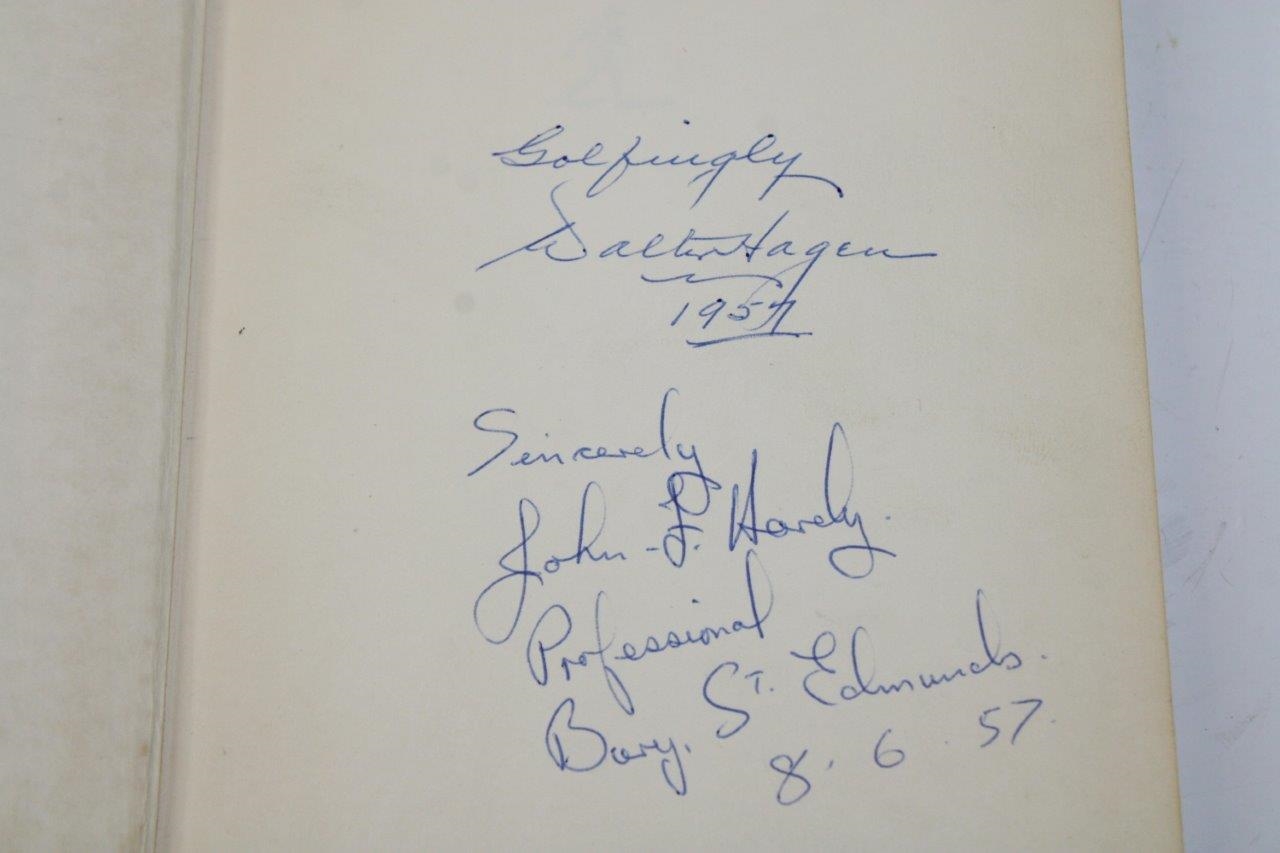 Golfingly
Walter Hagen
1957
Sincerely
John F. Hardy.
Professional
Bury. St. Edmunds.
8. 6. 57.